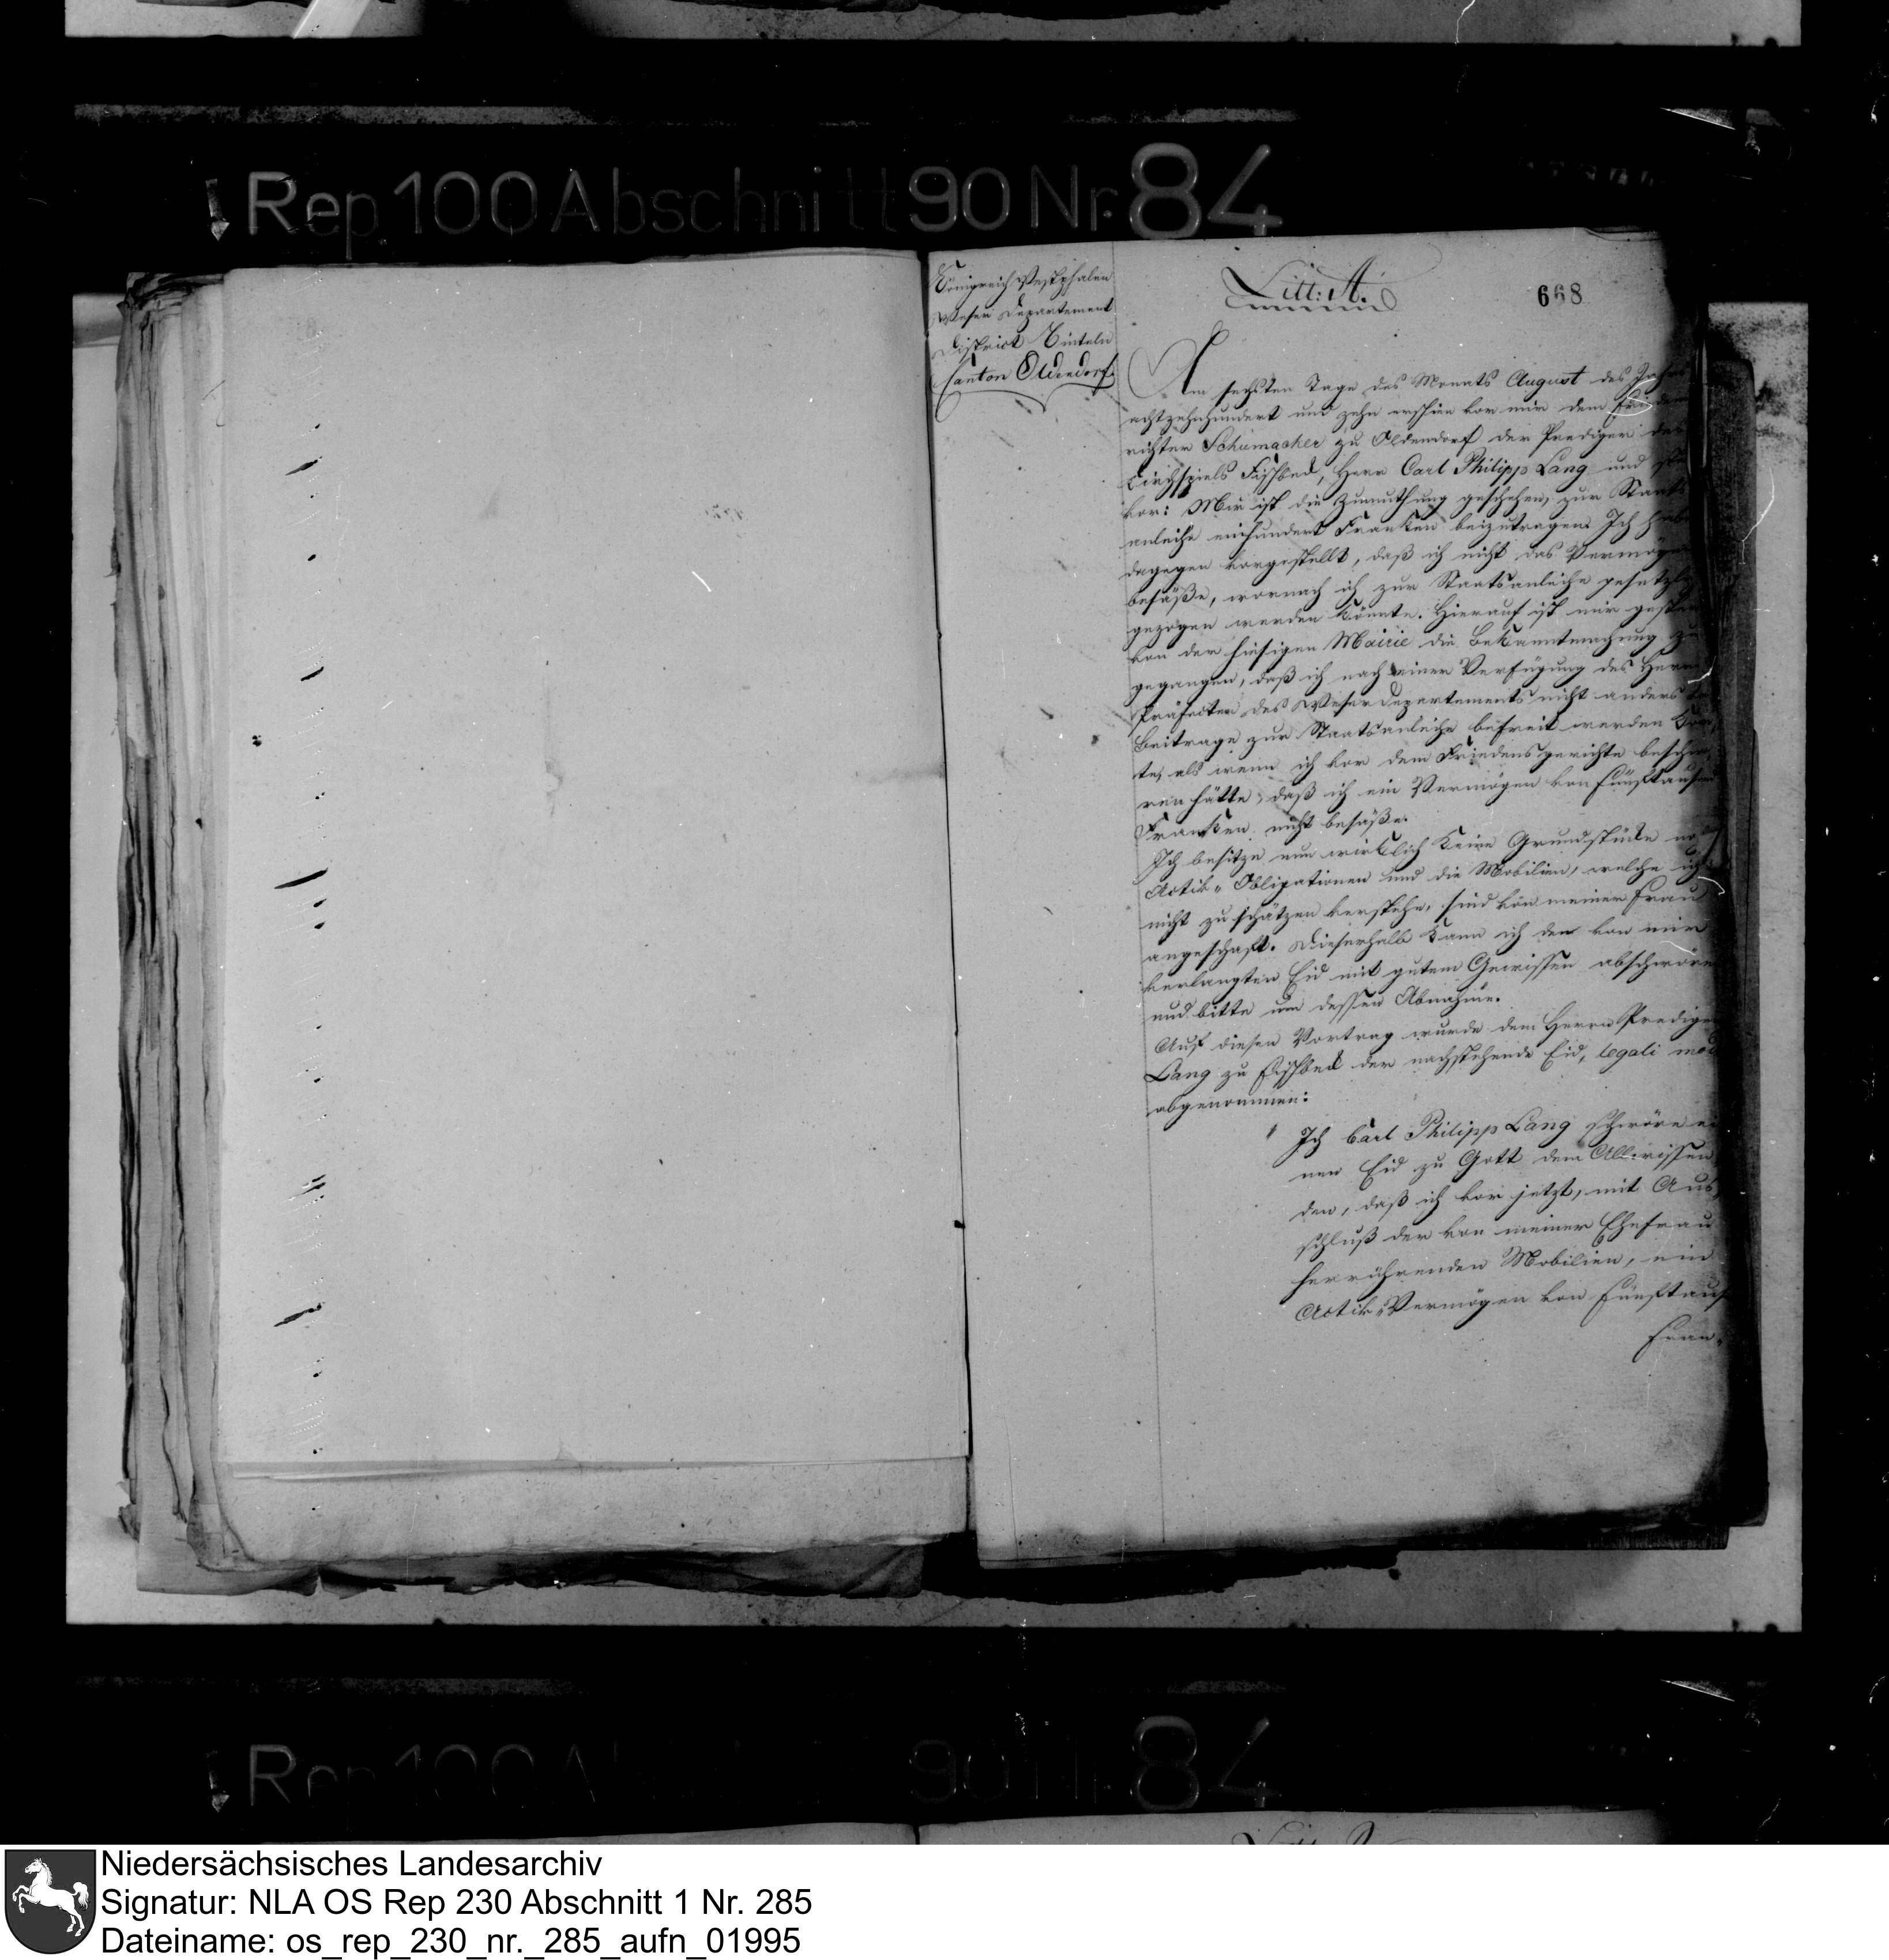 Rep. 100 Abschnitt 90 Nr. 84
Königreich Westphalen
Weser Departement
District Rinteln
Canton Oldendorf.
Litt. A.
668
Am sechsten Tage des Monats August des Jahrs
achtzehnhundert und zehn erschien vor mir dem Friedens
richter Schumacher zu Oldendorf der Prediger des
Kirchspiels Fischbeck, Herr Carl Philipp Lang und
vor: Mir ist die Zumuthung geschehen, zur Staats
anleihe einhundert Franken beizutragen. Ich habe
dagegen vorgestellt, daß ich nicht das Vermögen
besäße, wornach ich zur Staatsanleihe gesetzlich
gezogen werden könnte. Hierauf ist mir gestern
von der hiesigen Mairie die Bekanntmachung zu
gegangen, daß ich nach einer Verfügung des Herrn
Präfecten des Weserdepartements nicht anders
Beitrage zur Staatsanleihe befreit werden kön,
te, als wenn ich vor dem Friedensgerichte beschwo,
ren hätte, daß ich ein Vermögen von Fünftausend
Franken nicht besäße.
Ich besitze nun wirklich keine Grundstücke noch
Activ-Obligationen und die Mobilien, welche ich
nicht zu schätzen verstehe, sind von meiner Frau
angeschaft. Dieserhalb kann ich den von mir
verlangten Eid mit gutem Gewissen abschwören
und bitte um dessen Abnahme.
Auf diesen Vortrag wurde dem Herrn Prediger
Lang zu Fischbeck der nachstehende Eid, legali modo
abgenommen:
" Ich Carl Philipp Lang schwöre ei
nen Eid zu Gott dem Allwissen
den, daß ich vor jetzt, mit Aus,
schluß der von meiner Ehefrau
herrührenden Mobilien, ein
Activ-Vermögen von Fünftaus
Fran-
Rep. 100 A 90 Nr. 84
Niedersächsisches Landesarchiv
Signatur: NLA OS Rep 230 Abschnitt 1 Nr. 285
Dateiname: os_rep_230_nr._285_aufn_01995